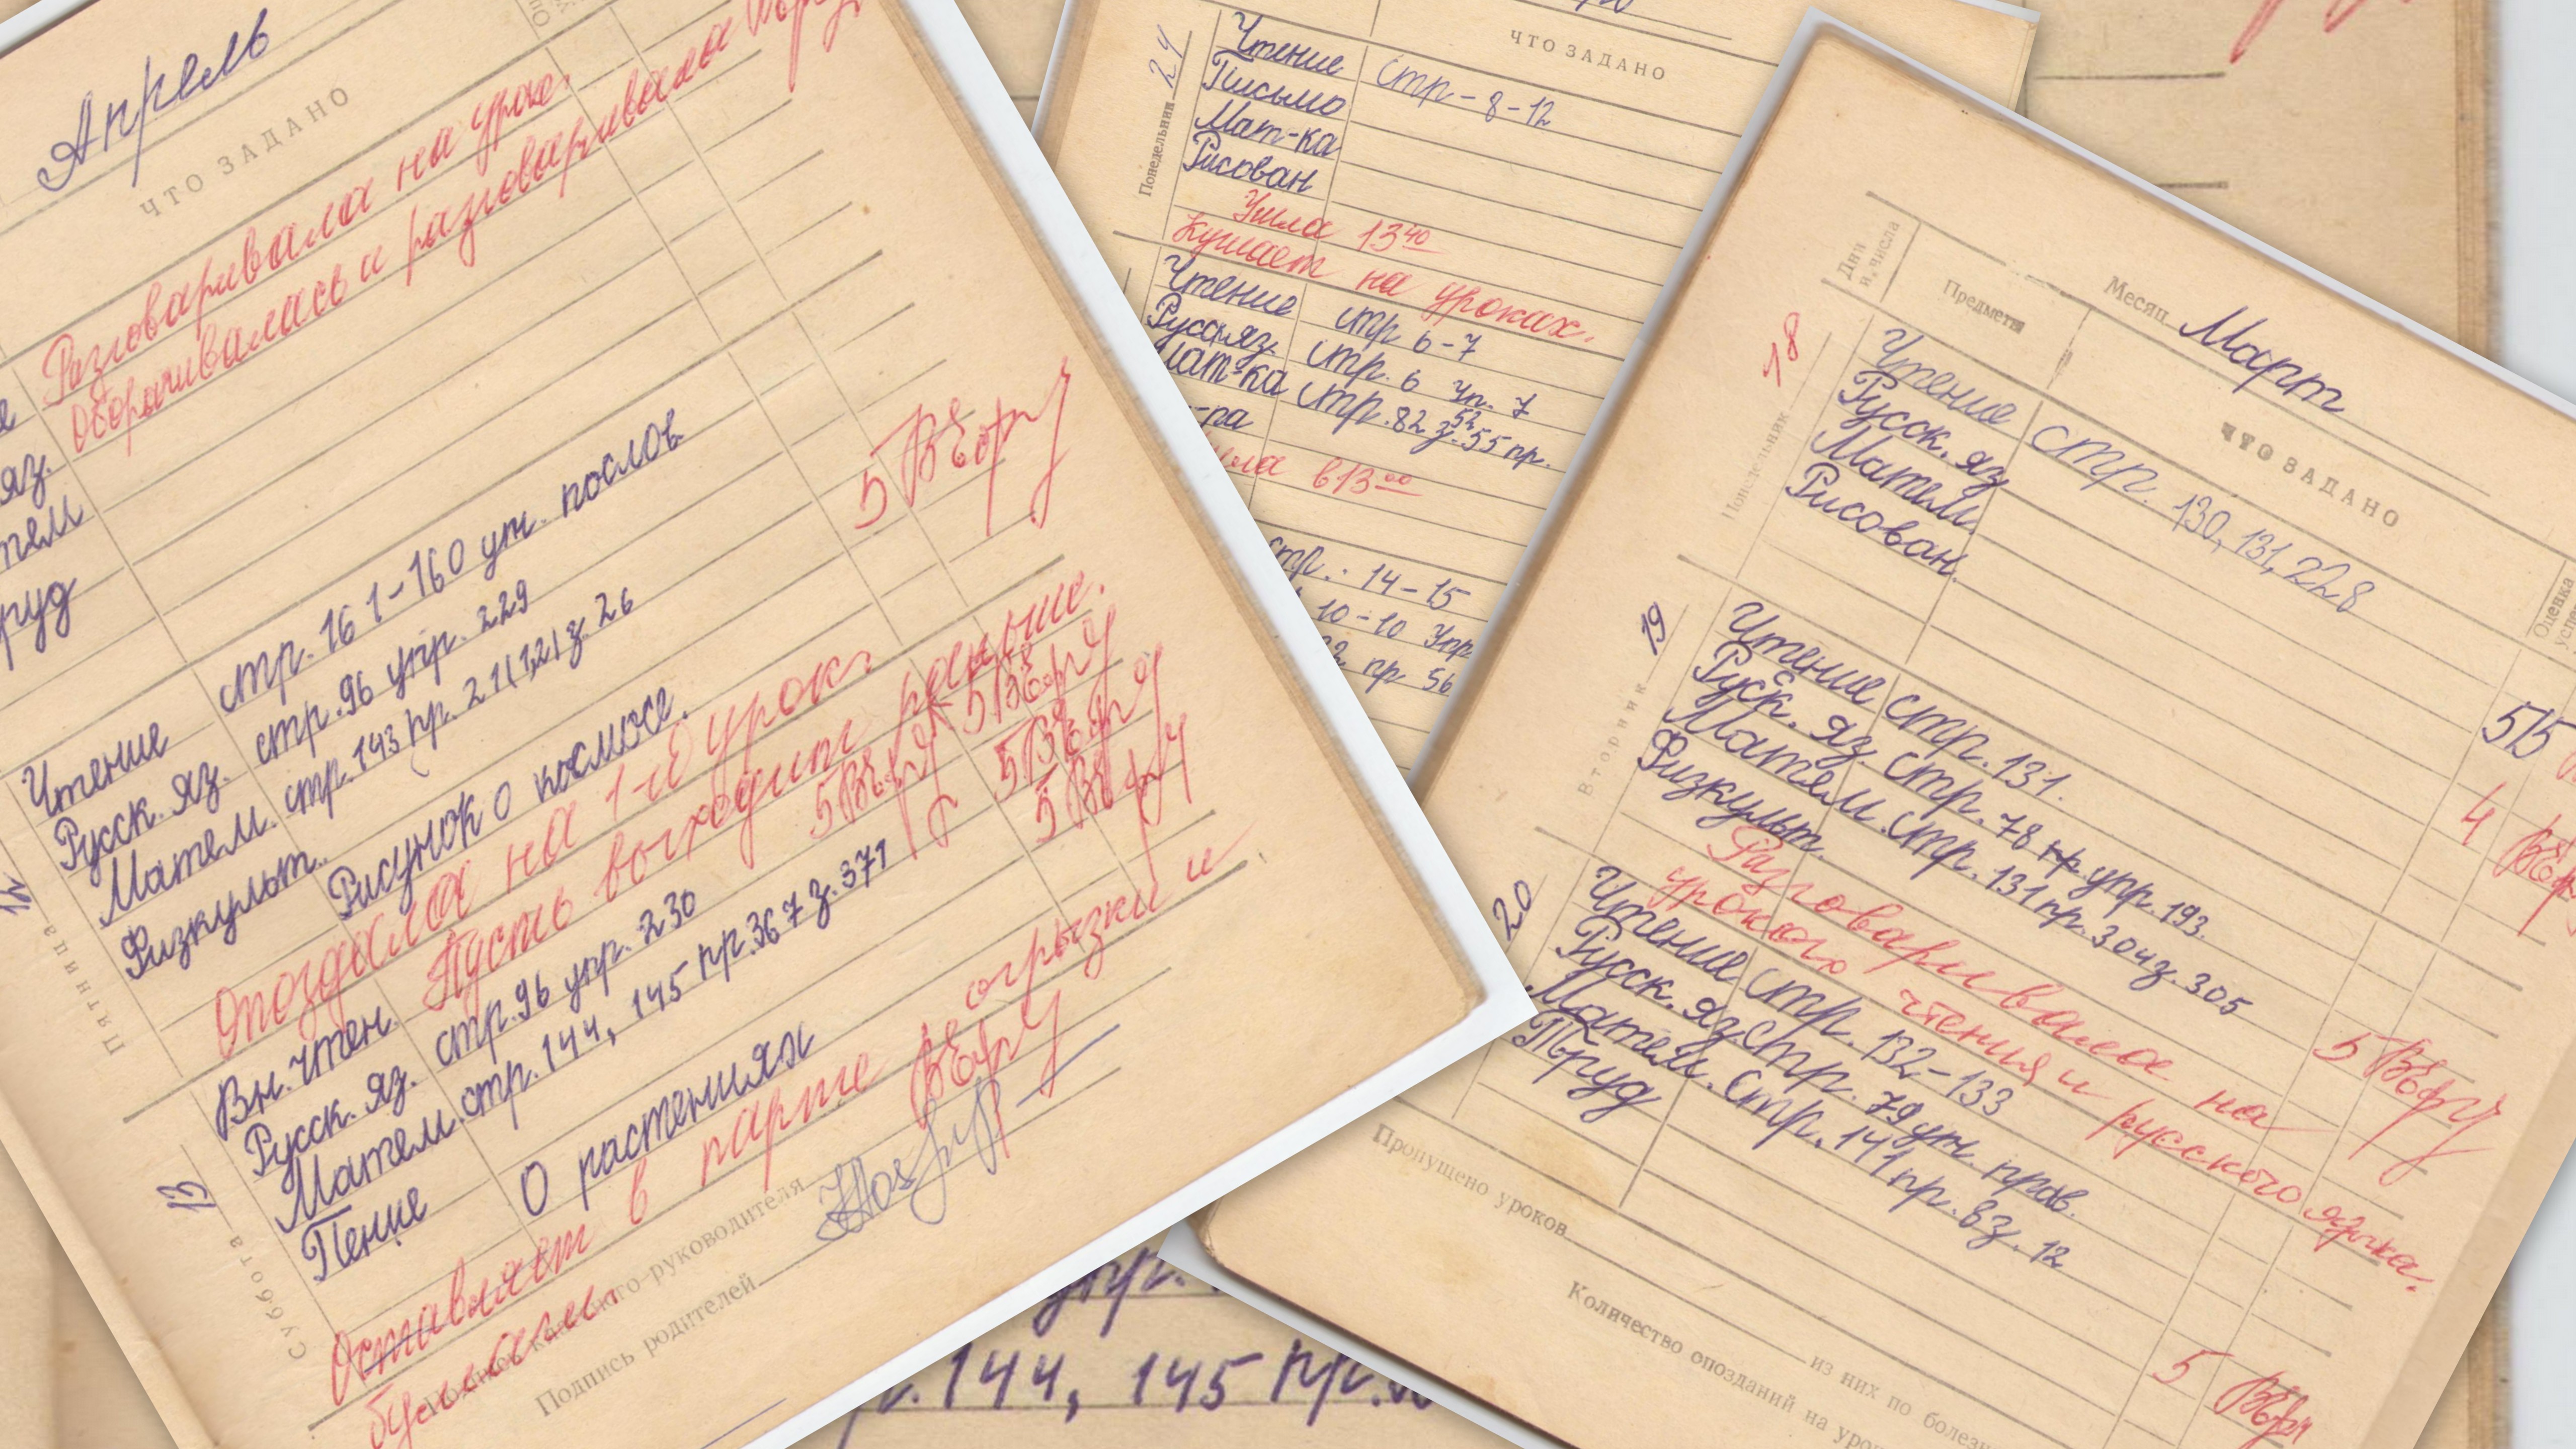 Апрель
ЧТО ЗАДАНО
Разговаривала на уроке.
Оборачивалась и разговаривала
яз.
руд
5
Чтение стр. 161-160 уст. послов.
Русск. яз. стр. 96 упр. 229
Матем. стр. 143 пр. 21(1,2) з. 26
Физкульт.
Рисунок о космосе.
Опоздала на 1-й урок.
Пусть выходит раньше.
Пятница
5
5
5
5
Вн. чтен.
Русск. яз. стр. 96 упр. 230
Матем. стр. 144, 145 пр. 367 з. 371
Пение
О растениях
Суббота 13
Оставляет в парте огрызки и
бумагами.
Подпись родителей
ЧТО ЗАДАНО
Понедельник 24
Чтение стр-8-12
Письмо
Мат-ка
Рисован
Ушла 13 40
Кушает на уроках.
Чтение стр 6-7
Русск яз. стр. 6 уп. 7
Мат-ка стр. 82 з. 52 55 пр.
-ра
в 13 00
стр. 14-15
10-10 Упр
пр 56
Месяц Март
Дни и числа
Предметы
ЧТО ЗАДАНО
Оценка
Понедельник 18
Чтение стр. 130, 131, 228
Русск. яз
Матем.
Рисован.
5/5
4
Вторник 19
Чтение стр. 131.
Руск. яз. стр. 78 упр. 193.
Матем. стр. 131 пр. 304 з. 305
Физкульт.
Разговаривала на
уроках чтения и русского языка.
5
20
Чтение стр. 132-133
Русск. яз стр. 79 уст. прав.
Матем. стр. 141 пр. 8 з. 12
Труд
5
Пропущено уроков
из них по болезн
Количество опозданий на уро
упр.
144, 145 пр.